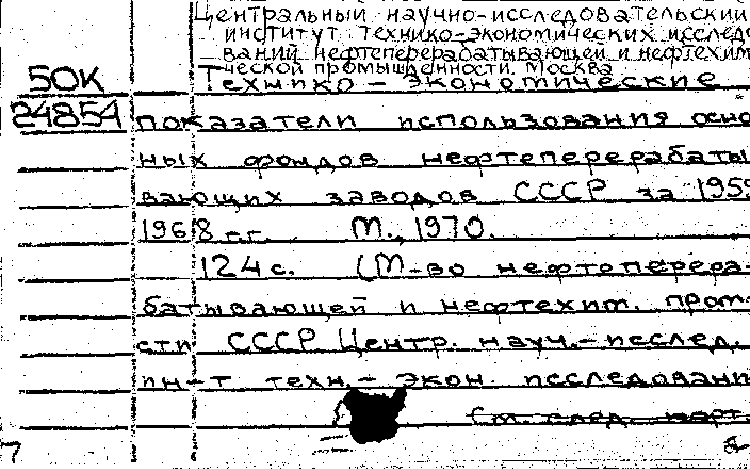 Центральный научно-исследовательский
институт технико-экономических исследо
ваний нефтеперерабатывающей и нефтехим
ической промышленности. Москва
50К
Технико-экономические
24854
показатели использования осно
ных фондов нефтеперерабаты
вающих заводов СССР за 1959
1968 г.г. М., 1970.
124 с. (М-во нефтоперера-
батывающей и нефтехим. пром-
сти СССР Центр. науч.-исслед.
ин-т техн.-экон. исследовани
См. след. карт.
7